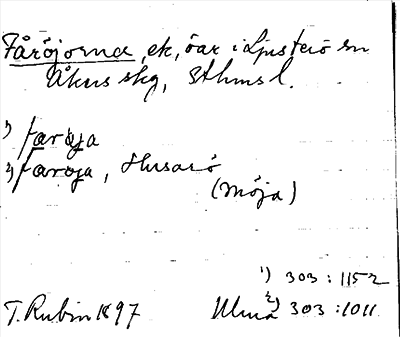 Fåröjorna, ek, öar i Ljusterö sn
Åkers skg, Sthms l.
1) faroja
2) faroja, Husarö
(Möja)
1) 303:1152
T. Rubin 1897
Ulma 2) 303:1011